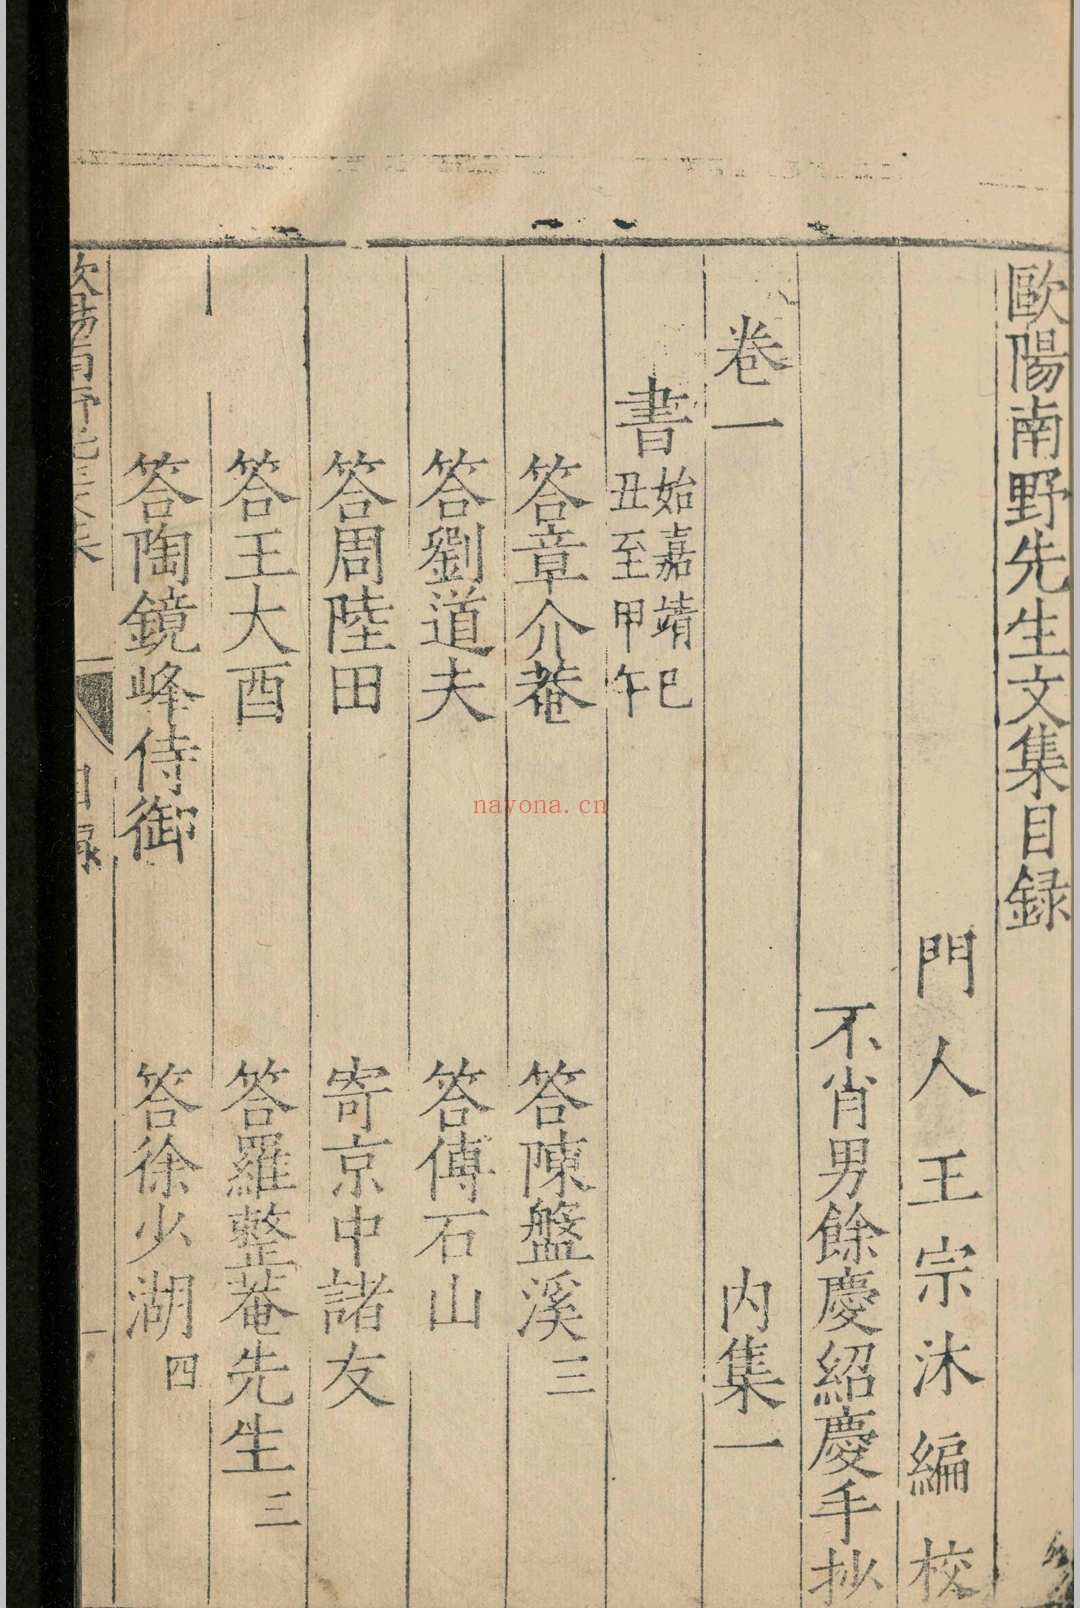 歐陽南野先生文集目録
門人王宗沐編校
不肖男餘慶紹慶手抄
卷一 内集一
書 始嘉靖己丑至甲午
答章介菴 答陳盤溪三
答劉道夫 答傅石山
答周陸田 寄京中諸友
答王大酉 答羅整菴先生三
答陶鏡峰侍御 答徐少湖四
目録
一
nayona.cn